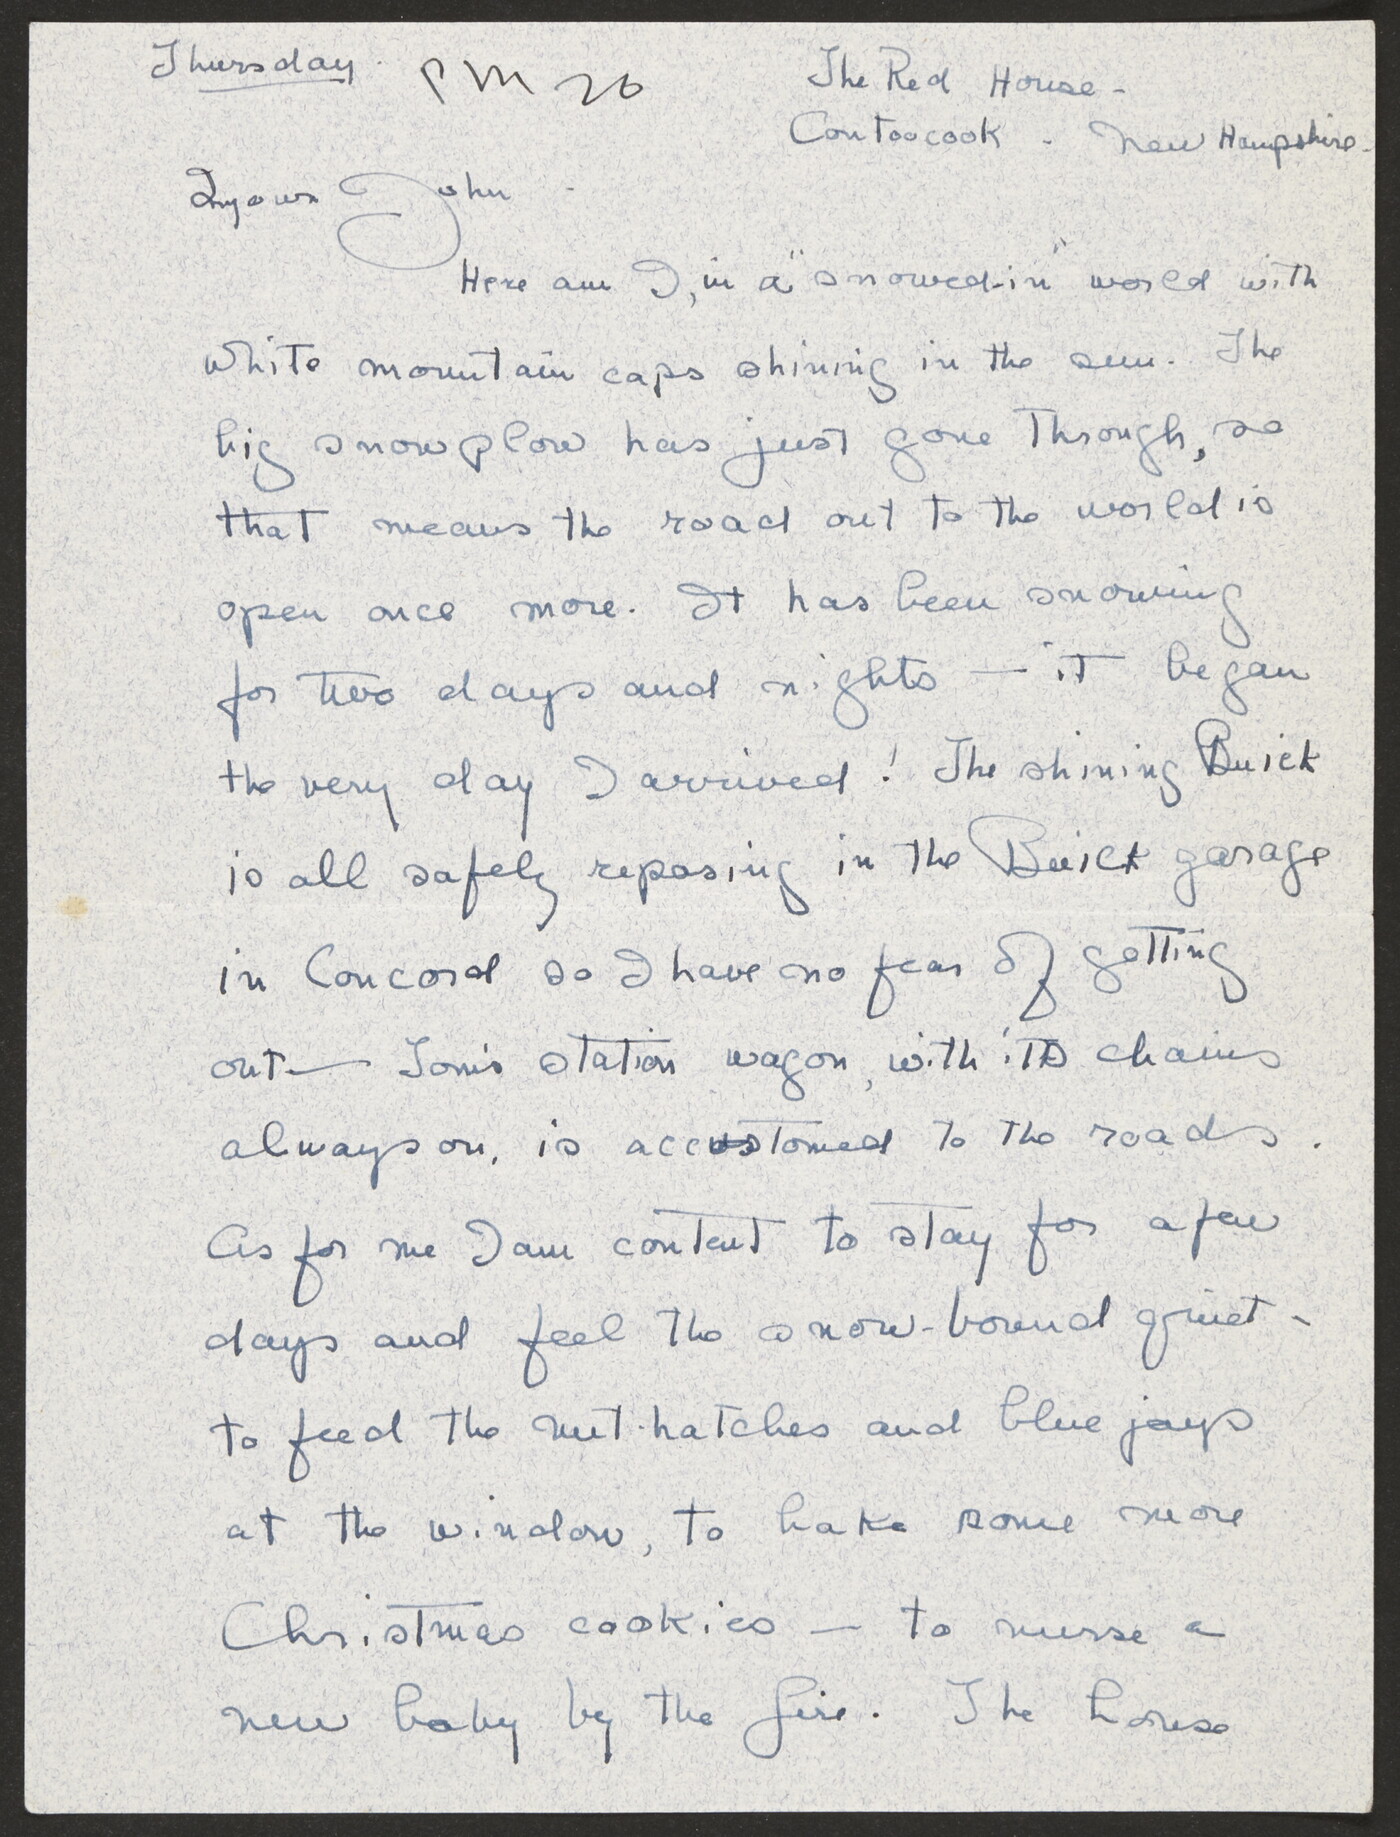 Thursday. PM 26
The Red House -
Contoocook - New Hampshire.
John -
Here am I, in a "snowed-in" world with
white mountain caps shining in the sun. The
big snowplow has just gone through, so
that means the road out to the world is
open once more. It has been snowing
for two days and nights — it began
the very day I arrived! The shining Buick
is all safely reposing in the Buick garage
in Concord so I have no fear of getting
out — Tom's station wagon, with its chains
always on, is accustomed to the roads.
As for me I am content to stay for a few
days and feel the snow-bound quiet -
to feed the nut-hatches and blue jays
at the window, to bake some more
Christmas cookies — to nurse a
new baby by the fire. The house